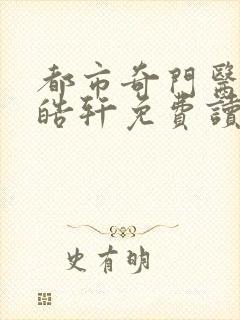 都市奇門醫
皓軒免費讀
史有明